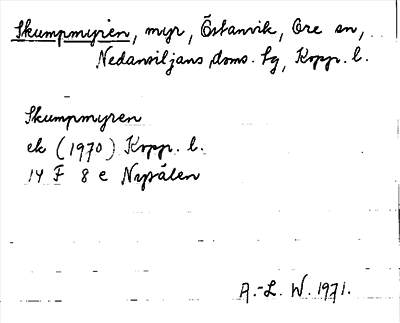 Skumpmyren, myr, Östanvik, Ore sn,
Nedansiljans doms. tg, Kopp. l.
Skumpmyren
ek (1970) Kopp. l.
14 F 8 e Nysälen
A.-L. W. 1971.